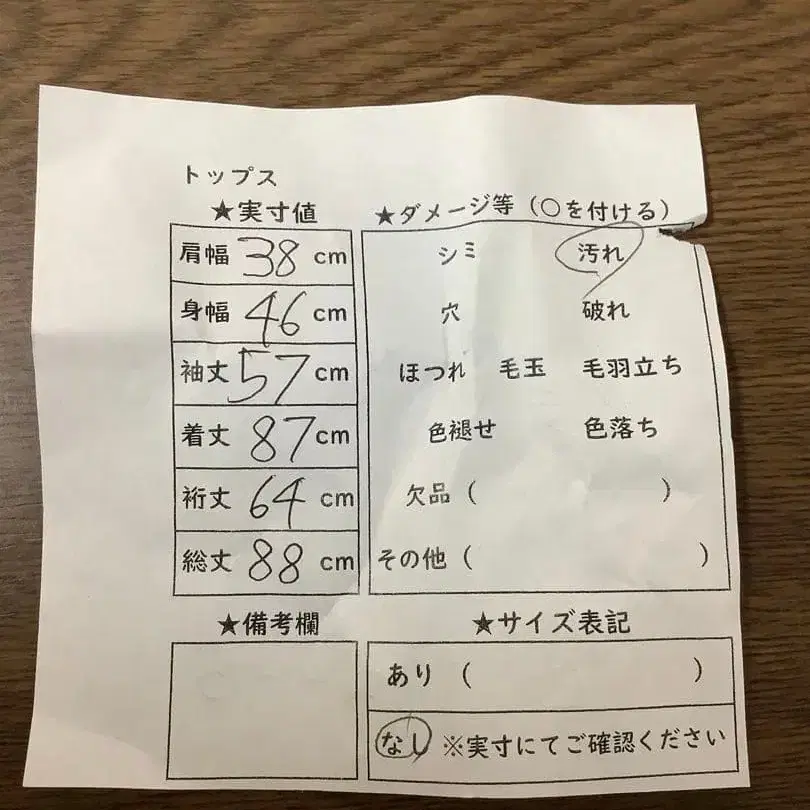 トップス
★実寸値
肩幅 38 cm
身幅 46 cm
袖丈 57 cm
着丈 87 cm
裄丈 64 cm
総丈 88 cm
★備考欄
★ダメージ等（○を付ける）
シミ 汚れ
穴 破れ
ほつれ 毛玉 毛羽立ち
色褪せ 色落ち
欠品（ ）
その他（ ）
★サイズ表記
あり（ ）
なし ※実寸にてご確認ください